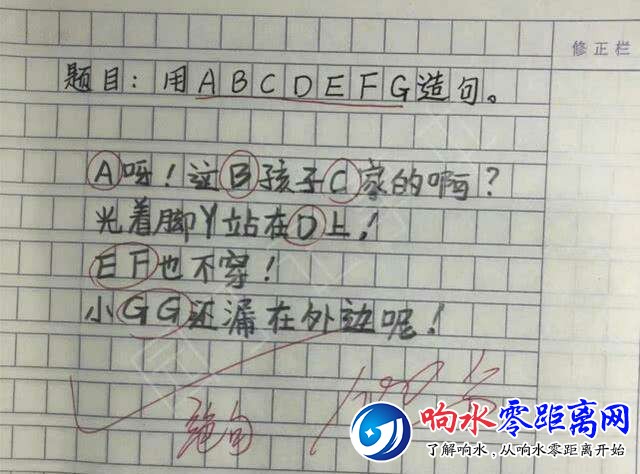 修正栏
题目：用ABCDEFG造句。
A呀！这B孩子C家的啊？
光着脚Y站在D上！
EF也不穿！
小GG还漏在外边呢！
绝句
100分
响水零距离网
了解响水，从响水零距离开始